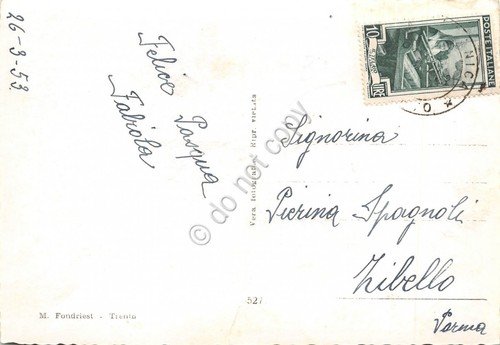 26-3-53
Felice Pasqua
Fabiola
Vera fotografia - Ripr. vietata
POSTE ITALIANE
10
LIRE
Signorina
Pierina Spagnoli
Zibello
Parma
527
M. Fondriest - Trento
© do not copy